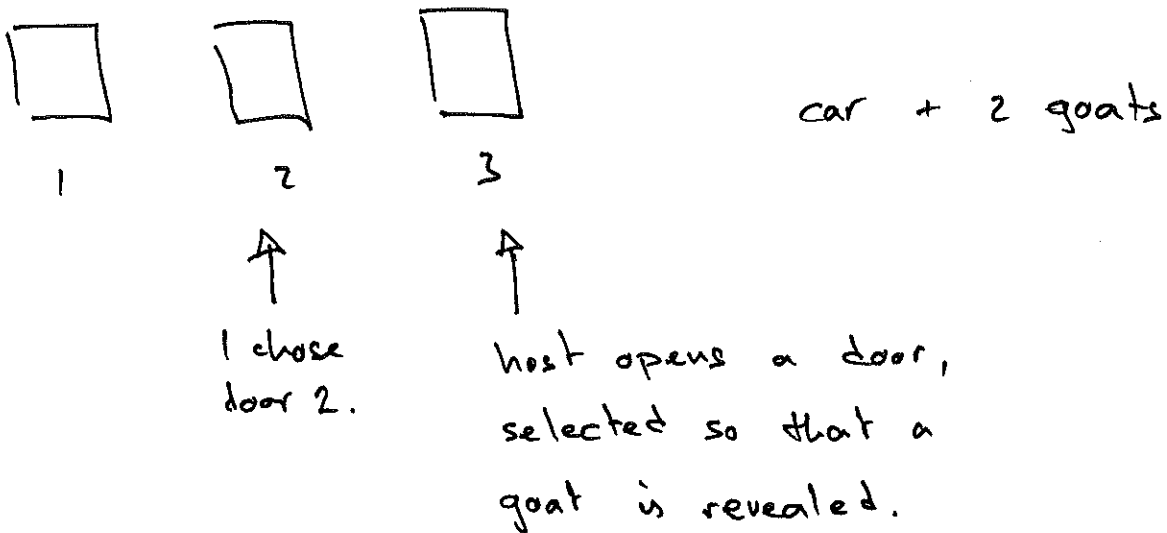 car + 2 goats
1 2 3
I chose
door 2.
host opens a door,
selected so that a
goat is revealed.